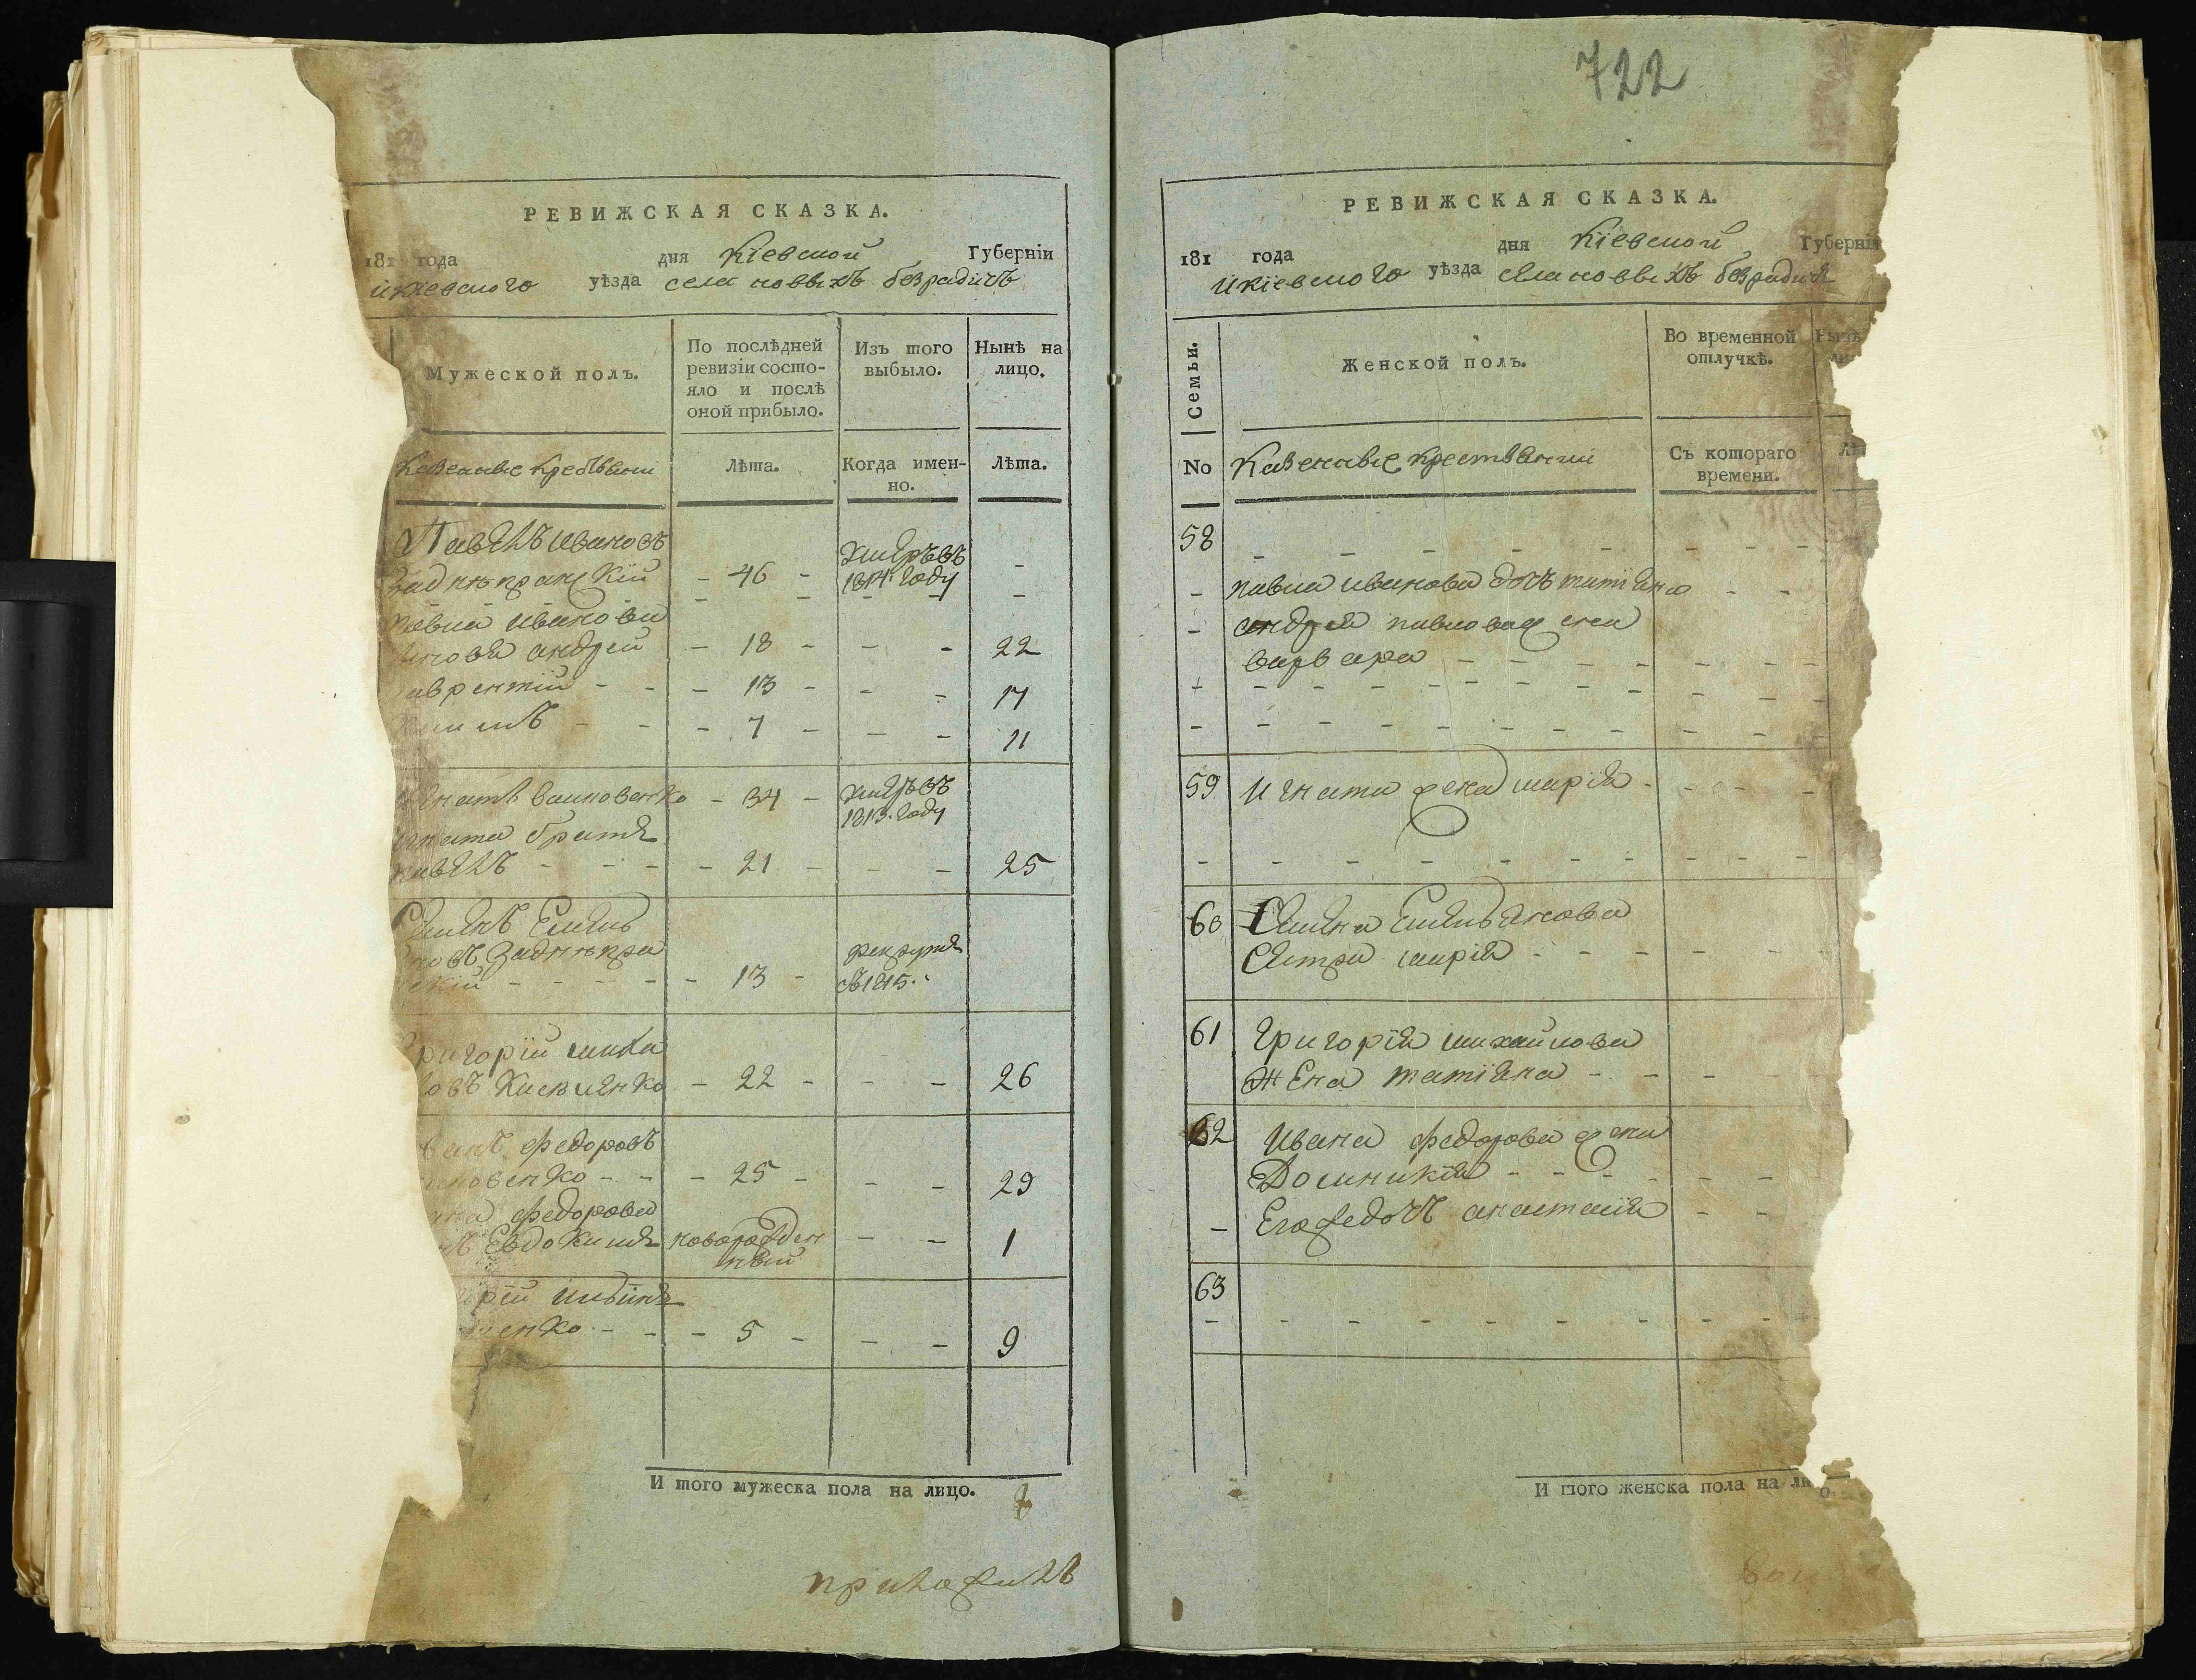 РЕВИЖСКАЯ СКАЗКА.
181 года дня Кіевской Губерніи
икіевского уѣзда села новыхъ безрадичъ
Мужеской полъ.
По послѣдней
ревизіи состо-
яло и послѣ
оной прибыло.
Изъ того
выбыло.
Нынѣ на
лицо.
Казенные крестьяни
Лѣта.
Когда имен-
но.
Лѣта.
Павелъ ивановъ
Заднѣпранскій - 46 - умеръ въ 1814. году -
павла иванова
андрей - 18 - - - 22
аврентій - - - 13 - - - 17
- - - 7 - - - 11
34 - умеръ въ
1813. году
игната братъ
павелъ - - - - 21 - - - 25
Семенъ Емель
новъ Заднѣпра
скій - - - - 13 - рекрутъ 1815.
григорій миха
овъ - 22 - - - 26
ванъ федоровъ
новенко - - - 25 - - - 29
на федорова
Евдокимъ новорожден
ный - - 1
рій
енко - - - 5 - - - 9
И того мужеска пола на лицо. 7
приложилъ
722
РЕВИЖСКАЯ СКАЗКА.
181 года дня Кіевской Губерні
икіевского уѣзда села новыхъ безрадичъ
Семьи.
Женской полъ.
Во временной
отлучкѣ.
Нынѣ
ли
No
Казенные крестьянии
Съ котораго
времени.
58 - - - - - - - -
- павла иванова дочь татіяна - -
- андрея павлова жена
варвара - - - - - - -
- - - - - - - - - - -
- - - - - - - - - - -
59 игната жена марія - - - -
- - - - - - - - - - -
60 Семена Емельянова
Сестра марія - - - - - -
61 григорія михайлова
жена татіяна - - - - -
62 ивана федорова жена
Домникія - - - - - -
- Его же дочь анастасія - -
63
- - - - - - - - - -
И того женска пола на ли о.